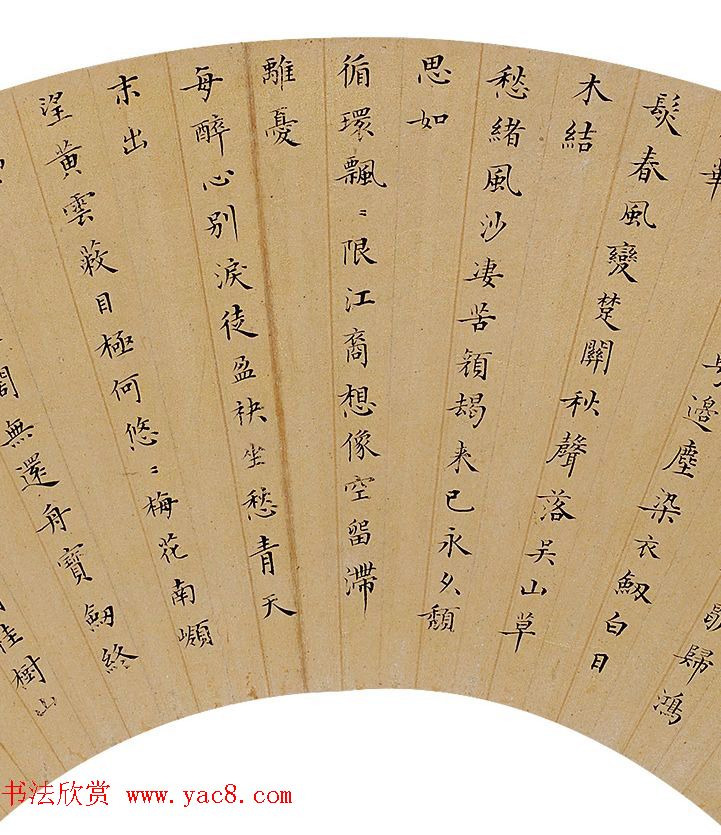 歸鴻
邊塵染衣劒白日
華
髮春風變楚關秋聲落吳山草
木結
愁緒風沙凄苦顏朅来已永久頹
思如
循環飄〻限江裔想像空留滯
離憂
每醉心別淚徒盈袂坐愁青天
末出
望黃雲蔽目極何悠〻梅花南嶺
闊無還舟寶劒終
桂樹山
书法欣赏 www.yac8.com